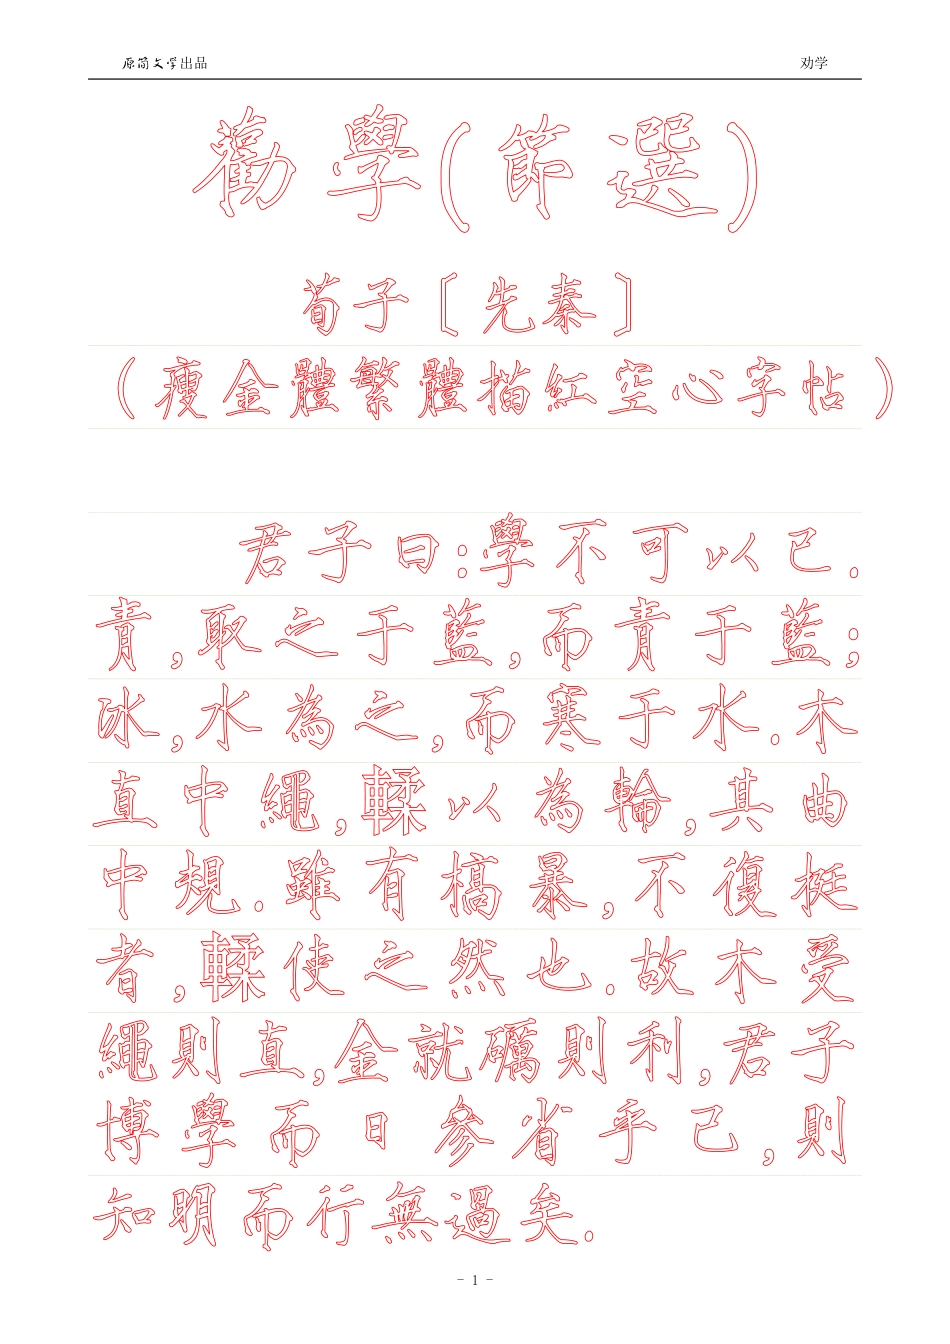 原简文学出品 劝学
勸學(節選)
荀子〔先秦〕
(瘦金體繁體描紅空心字帖)
君子曰:學不可以已.
青,取之于藍,而青于藍;
冰,水為之,而寒于水.木
直中繩,輮以為輪,其曲
中規.雖有槁暴,不復挺
者,輮使之然也.故木受
繩則直,金就礪則利,君子
博學而日參省乎己,則
知明而行無過矣.
- 1 -